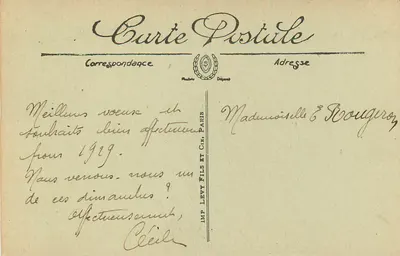 Carte Postale
Correspondance
Adresse
Modèle Déposé
Meilleurs voeux et
souhaits bien affectueux
pour 1919.
Vous verrons-nous un
de ces dimanches ?
Affectueusement,
Cécile
IMP. LEVY FILS ET Cie, PARIS
Mademoiselle E Rougeron